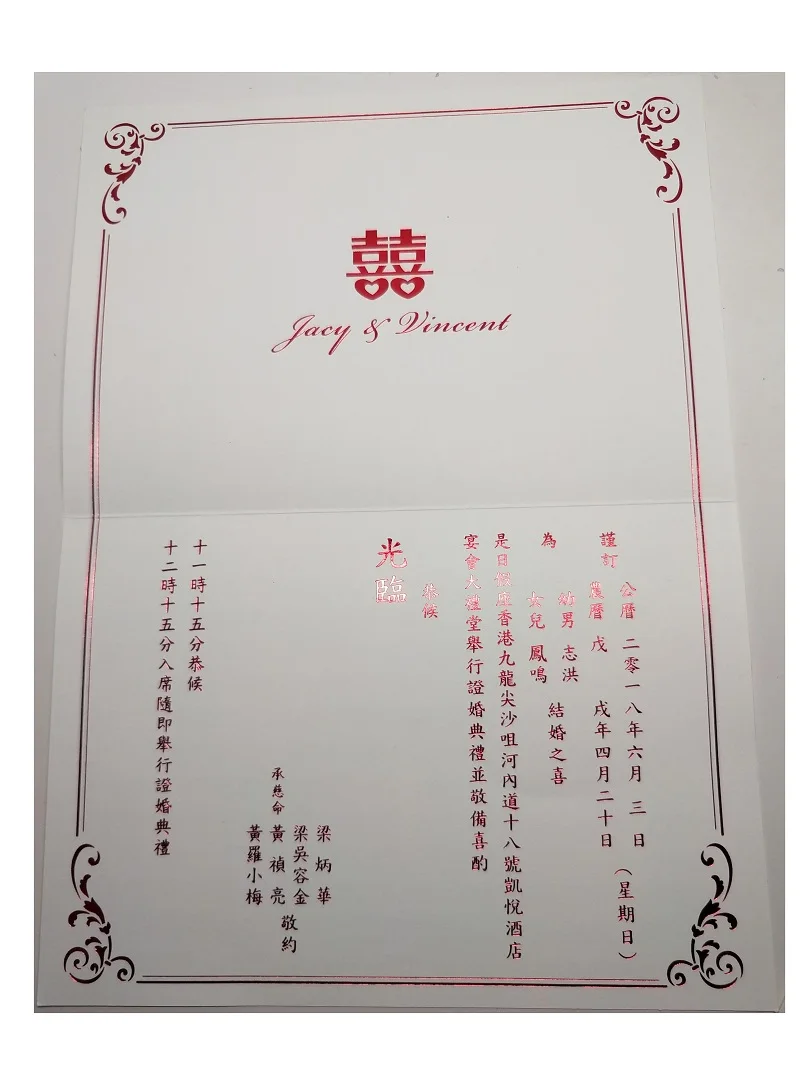 囍
Jacy & Vincent
謹訂
公曆 二零一八年六月三日
農曆 戊戌年四月二十日
(星期日)
為
幼男 志洪
女兒 鳳鳴
結婚之喜
是日假座香港九龍尖沙咀河內道十八號凱悅酒店
宴會大禮堂舉行證婚典禮並敬備喜酌
恭候
光臨
梁炳華
梁吳容金
承慈命 黃禎亮
黃羅小梅
敬約
十一時十五分恭候
十二時十五分入席隨即舉行證婚典禮